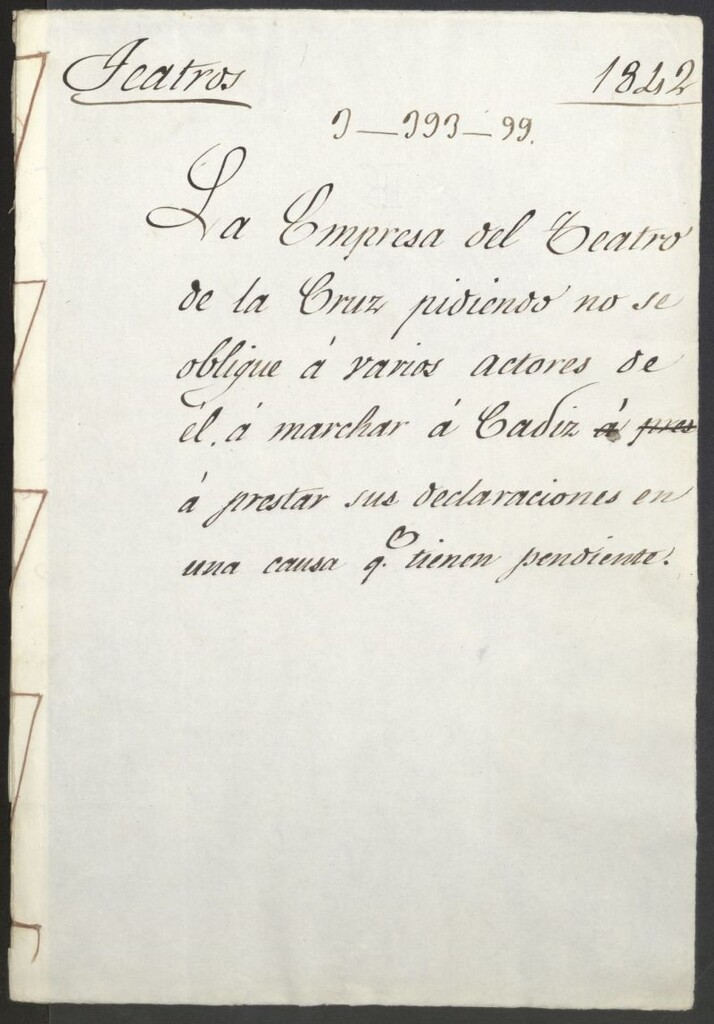 Teatros 1842
3-393-99.
La Empresa del Teatro
de la Cruz pidiendo no se
oblique á varios actores de
él, á marchar á Cadiz á pres
á prestar sus declaraciones en
una causa q.e tienen pendiente.